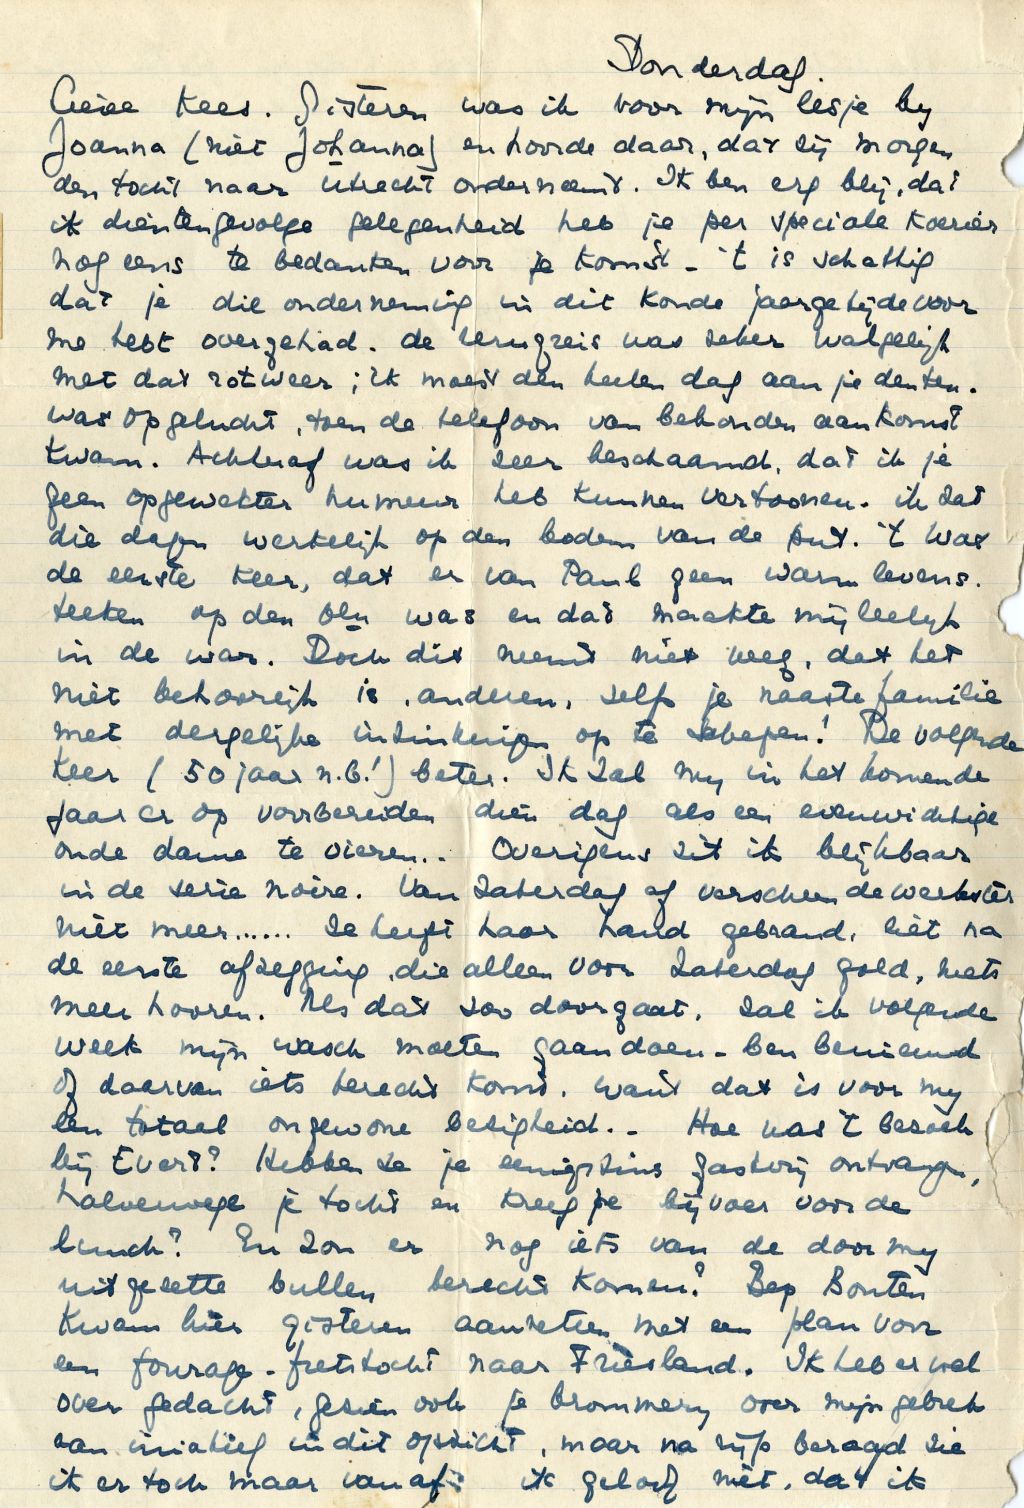 Donderdag.
Lieve Kees. Gisteren was ik voor mijn lesje by
Joanna (niet Johanna) en hoorde daar, dat zij morgen
den tocht naar Utrecht onderneemt. Ik ben erg blij, dat
ik dientengevolge gelegenheid heb je per speciale koerier
nog eens te bedanken voor je komst - 't is schattig
dat je die onderneming in dit koude jaargetijde voor
me hebt overgehad. de terugreis was zeker walgelijk
met dat rotweer; ik moest den heelen dag aan je denken.
was opgelucht, toen de telefoon van behouden aankomst
kwam. Achteraf was ik zeer beschaamd, dat ik je
geen opgewekter humeur heb kunnen vertoonen. ik zat
die dagen werkelijk op den bodem van de put. 't Was
de eerste keer, dat er van Paul geen warm levens-
teeken op den bly was en dat maakte mij leelijk
in de war. Doch dit neemt niet weg, dat het
niet behoorlijk is, anderen, zelfs je naaste familie
met dergelijke inzinkingen op te schepen! De volgende
keer (50 jaar n.b.!) beter. Ik zal my in het komende
jaar er op voorbereiden dien dag als een evenwichtige
oude dame te vieren.. Overigens zit ik blijkbaar
in de serie noire. Van Zaterdag af verscheen de werkster
niet meer...... Ze heeft haar hand gebrand, liet na
de eerste afzegging, die alleen voor Zaterdag gold, niets
meer hooren. Als dat zoo doorgaat, zal ik volgende
week mijn wasch moeten gaan doen - ben benieuwd
of daarvan iets terecht komt. want dat is voor my
een totaal ongewone bezigheid.- Hoe was 't bezoek
bij Evert? Hebben ze je eenigszins gastvrij ontvangen,
halverwege je tocht en kreeg je bijvoer voor de
lunch? En zou er nog iets van de door my
uitgezette bullen terecht komen? Bep Bouten
kwam hier gisteren aanzetten met een plan voor
een fourage-fietstocht naar Friesland. Ik heb er wel
over gedacht, gezien ook je brommery over mijn gebrek
aan iniatief in dit opzicht, maar na rijp beraad zie
ik er toch maar van af: ik geloof niet, dat ik